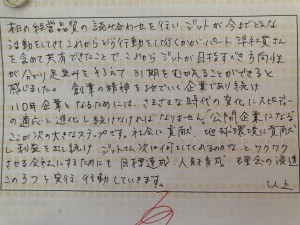 相の経営品質の読み合わせを行い、ジットが今までどんな
活動をしてきてこれからどう行動をして行くのかがパート、準社員さん
を含めて共有できたことで、これからジットが目指すべき方向性
が分かり足並みをそろえて31期をむかえることができると
感じました。 創業の精神を地でいく企業であり続け
110年企業となるためには、さまざまな時代の変化にスピーディー
の適応と進化し続けなければなりません。公開企業になる
ここが次の大きなステップです。社会に貢献、地球環境に貢献
し利益を出し続け ジットさん次は何をしてくれるのかな、とワクワク
させる会社にするためにも 目標達成、人財育成、理念の浸透
この3つを実行、行動していきます。
以上